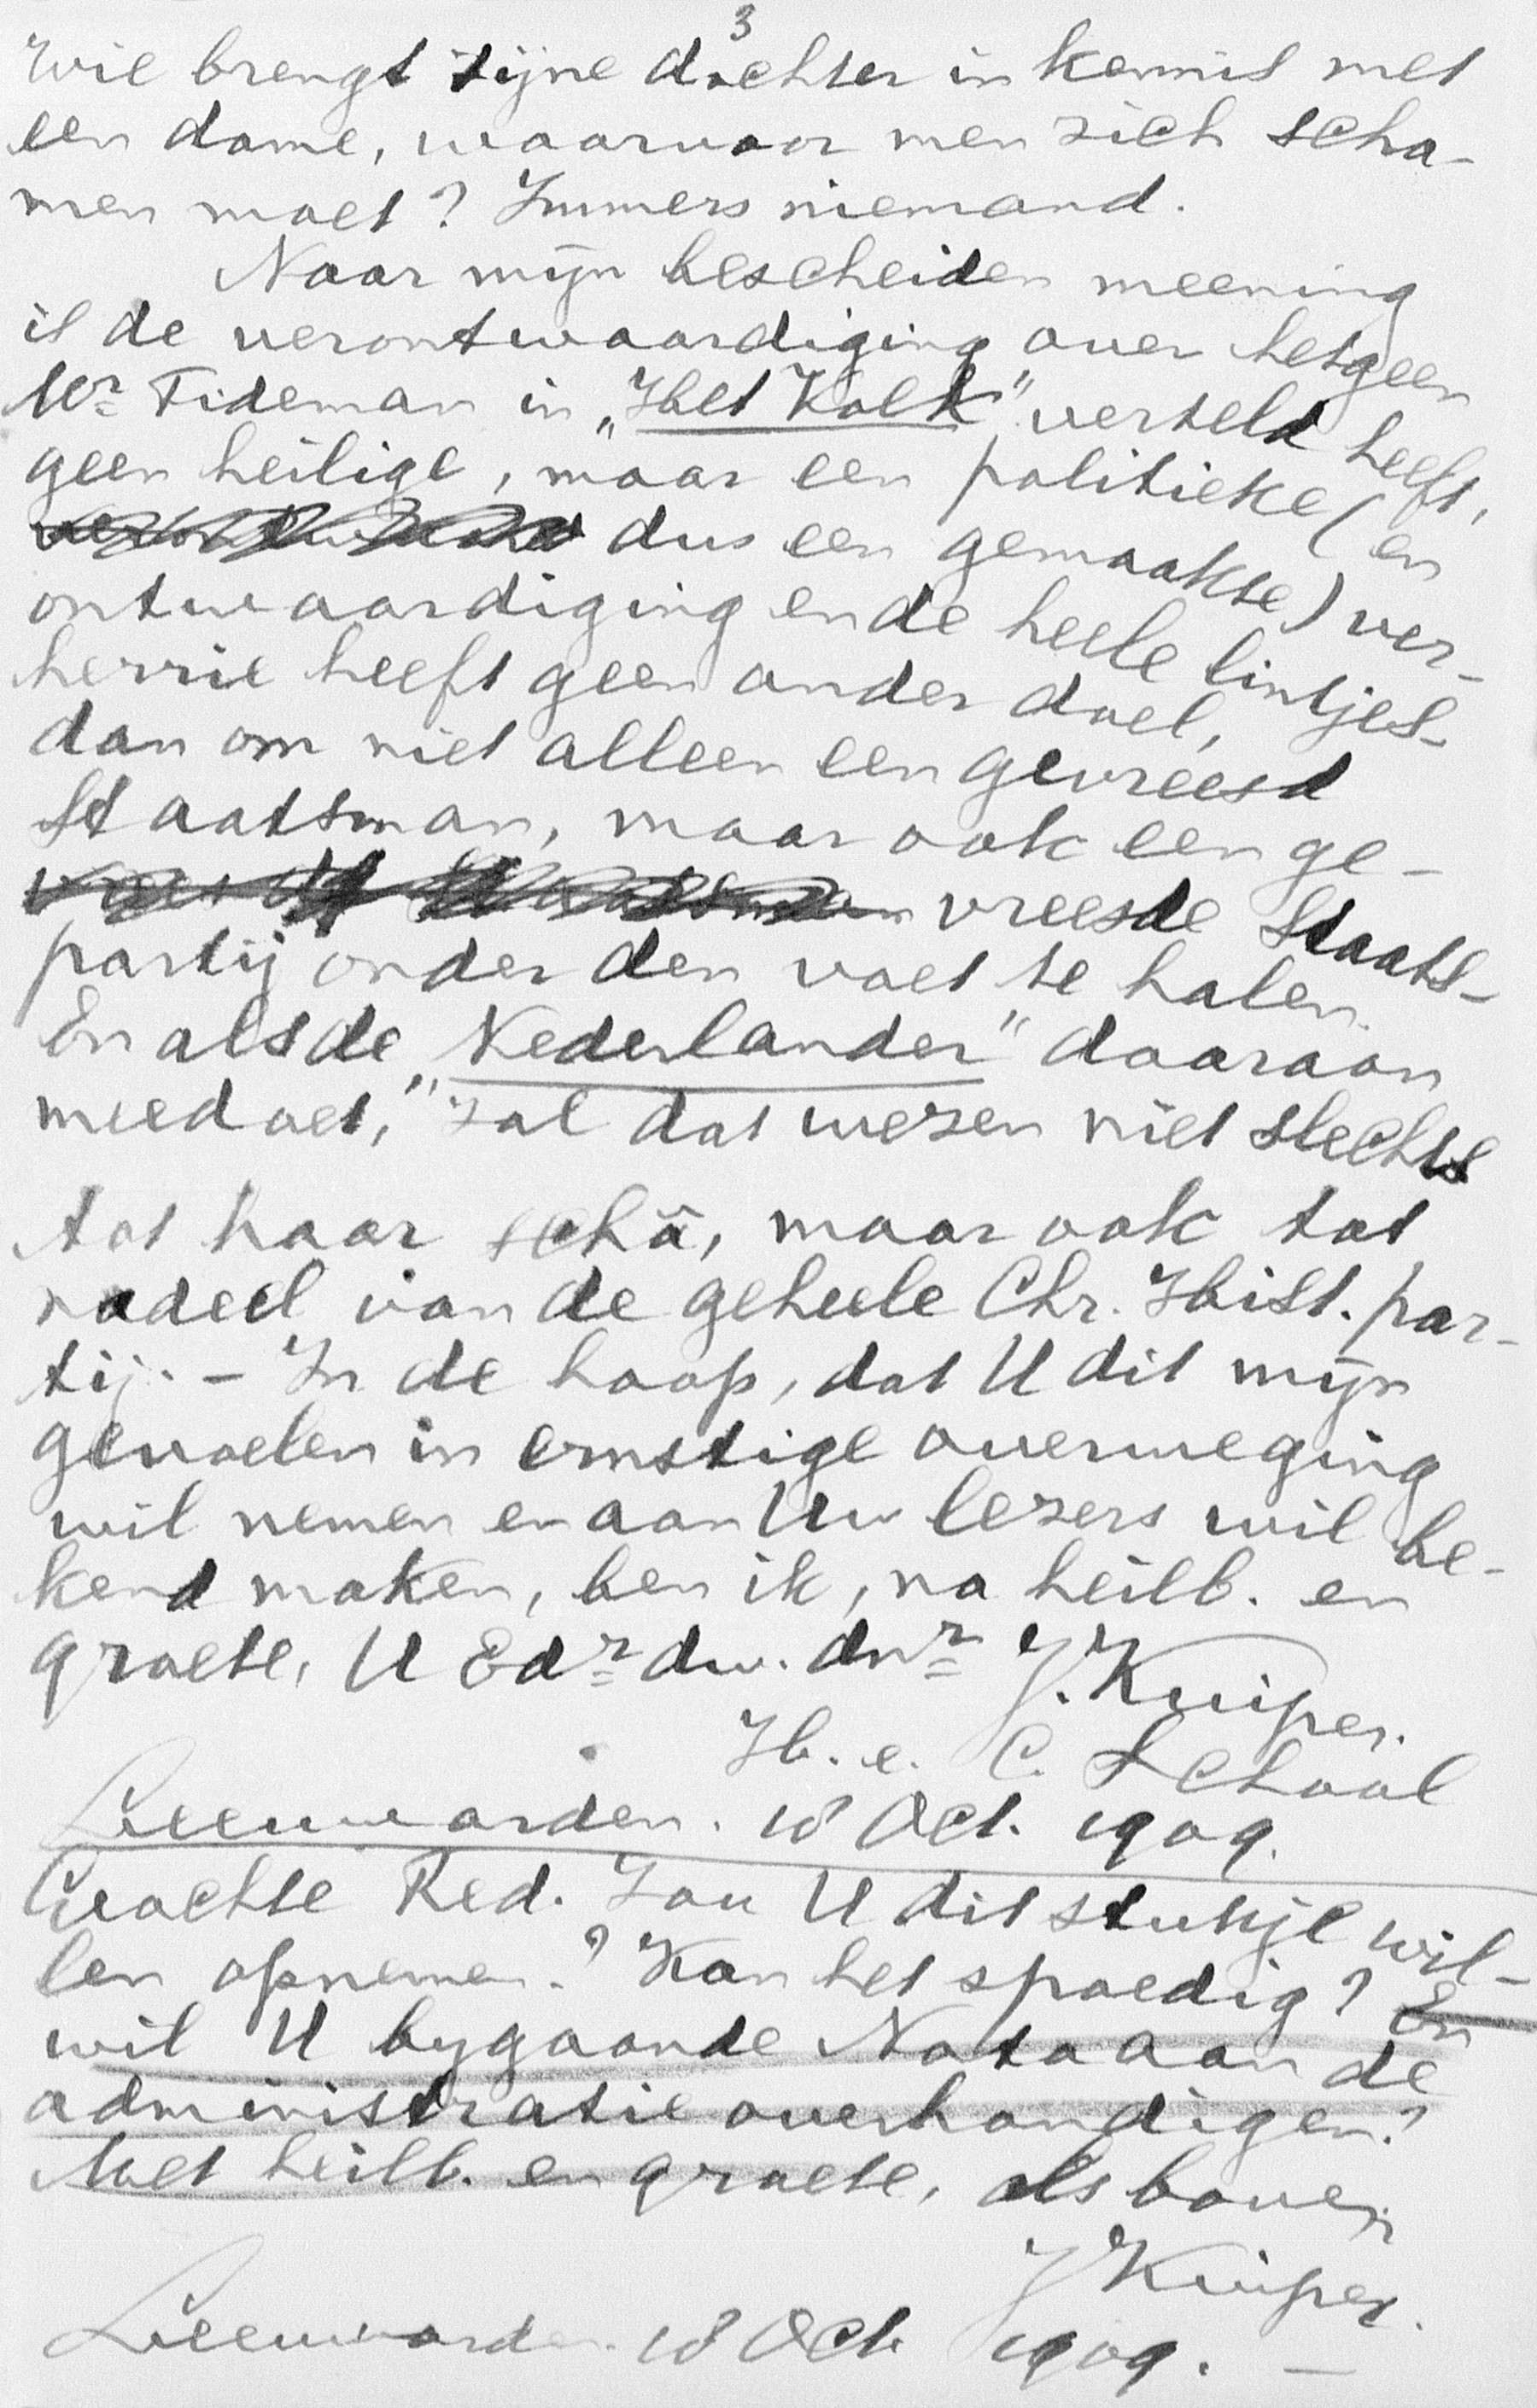 3
Wie brengt zijne dochter in kennis met
een dame, waarvoor men zich scha-
men moet? Immers niemand.
Naar mijn bescheiden meening
is de verontwaardiging over hetgeen
Mr Tideman in „Het Volk" verteld heeft,
geen heilige, maar een politieke (en
dus een gemaakte) ver-
ontwaardiging en de heele lintjes-
herrie heeft geen ander doel,
dan om niet alleen een gevreesd
Staatsman, maar ook een ge-
vreesde Staats-
partij onder den voet te halen.
En als de „Nederlander" daaraan
meedoet, zal dat wezen niet slechts
tot haar schâ, maar ook tot
nadeel van de geheele Chr. Hist. par-
tij. - In de hoop, dat U dit mijn
gevoelen in ernstige overweging
wil nemen en aan Uw lezers wil be-
kend maken, ben ik, na heilb. en
groete, U Edr dw. dnr J. Kuiper.
H. e. C. School
Leeuwarden. 18 Oct. 1909.
Geachte Red. Zou U dit stukje wil-
len opnemen? Kan het spoedig? En
wil U bygaande Nota aan de
administratie overhandigen?
Met heilb. en groete, als boven
J Kuiper.
Leeuwarden. 18 Oct. 1909. -